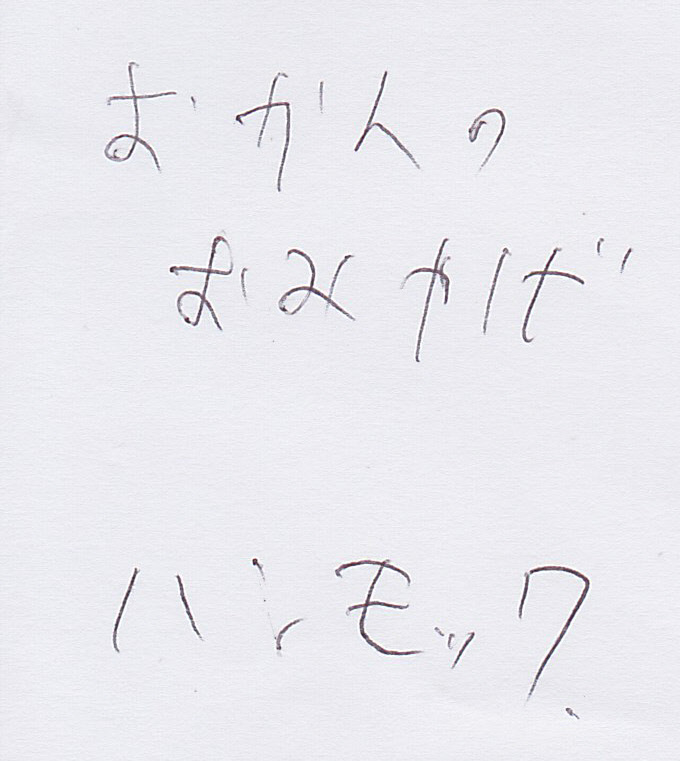 おかんの
おみやげ
ハンモック